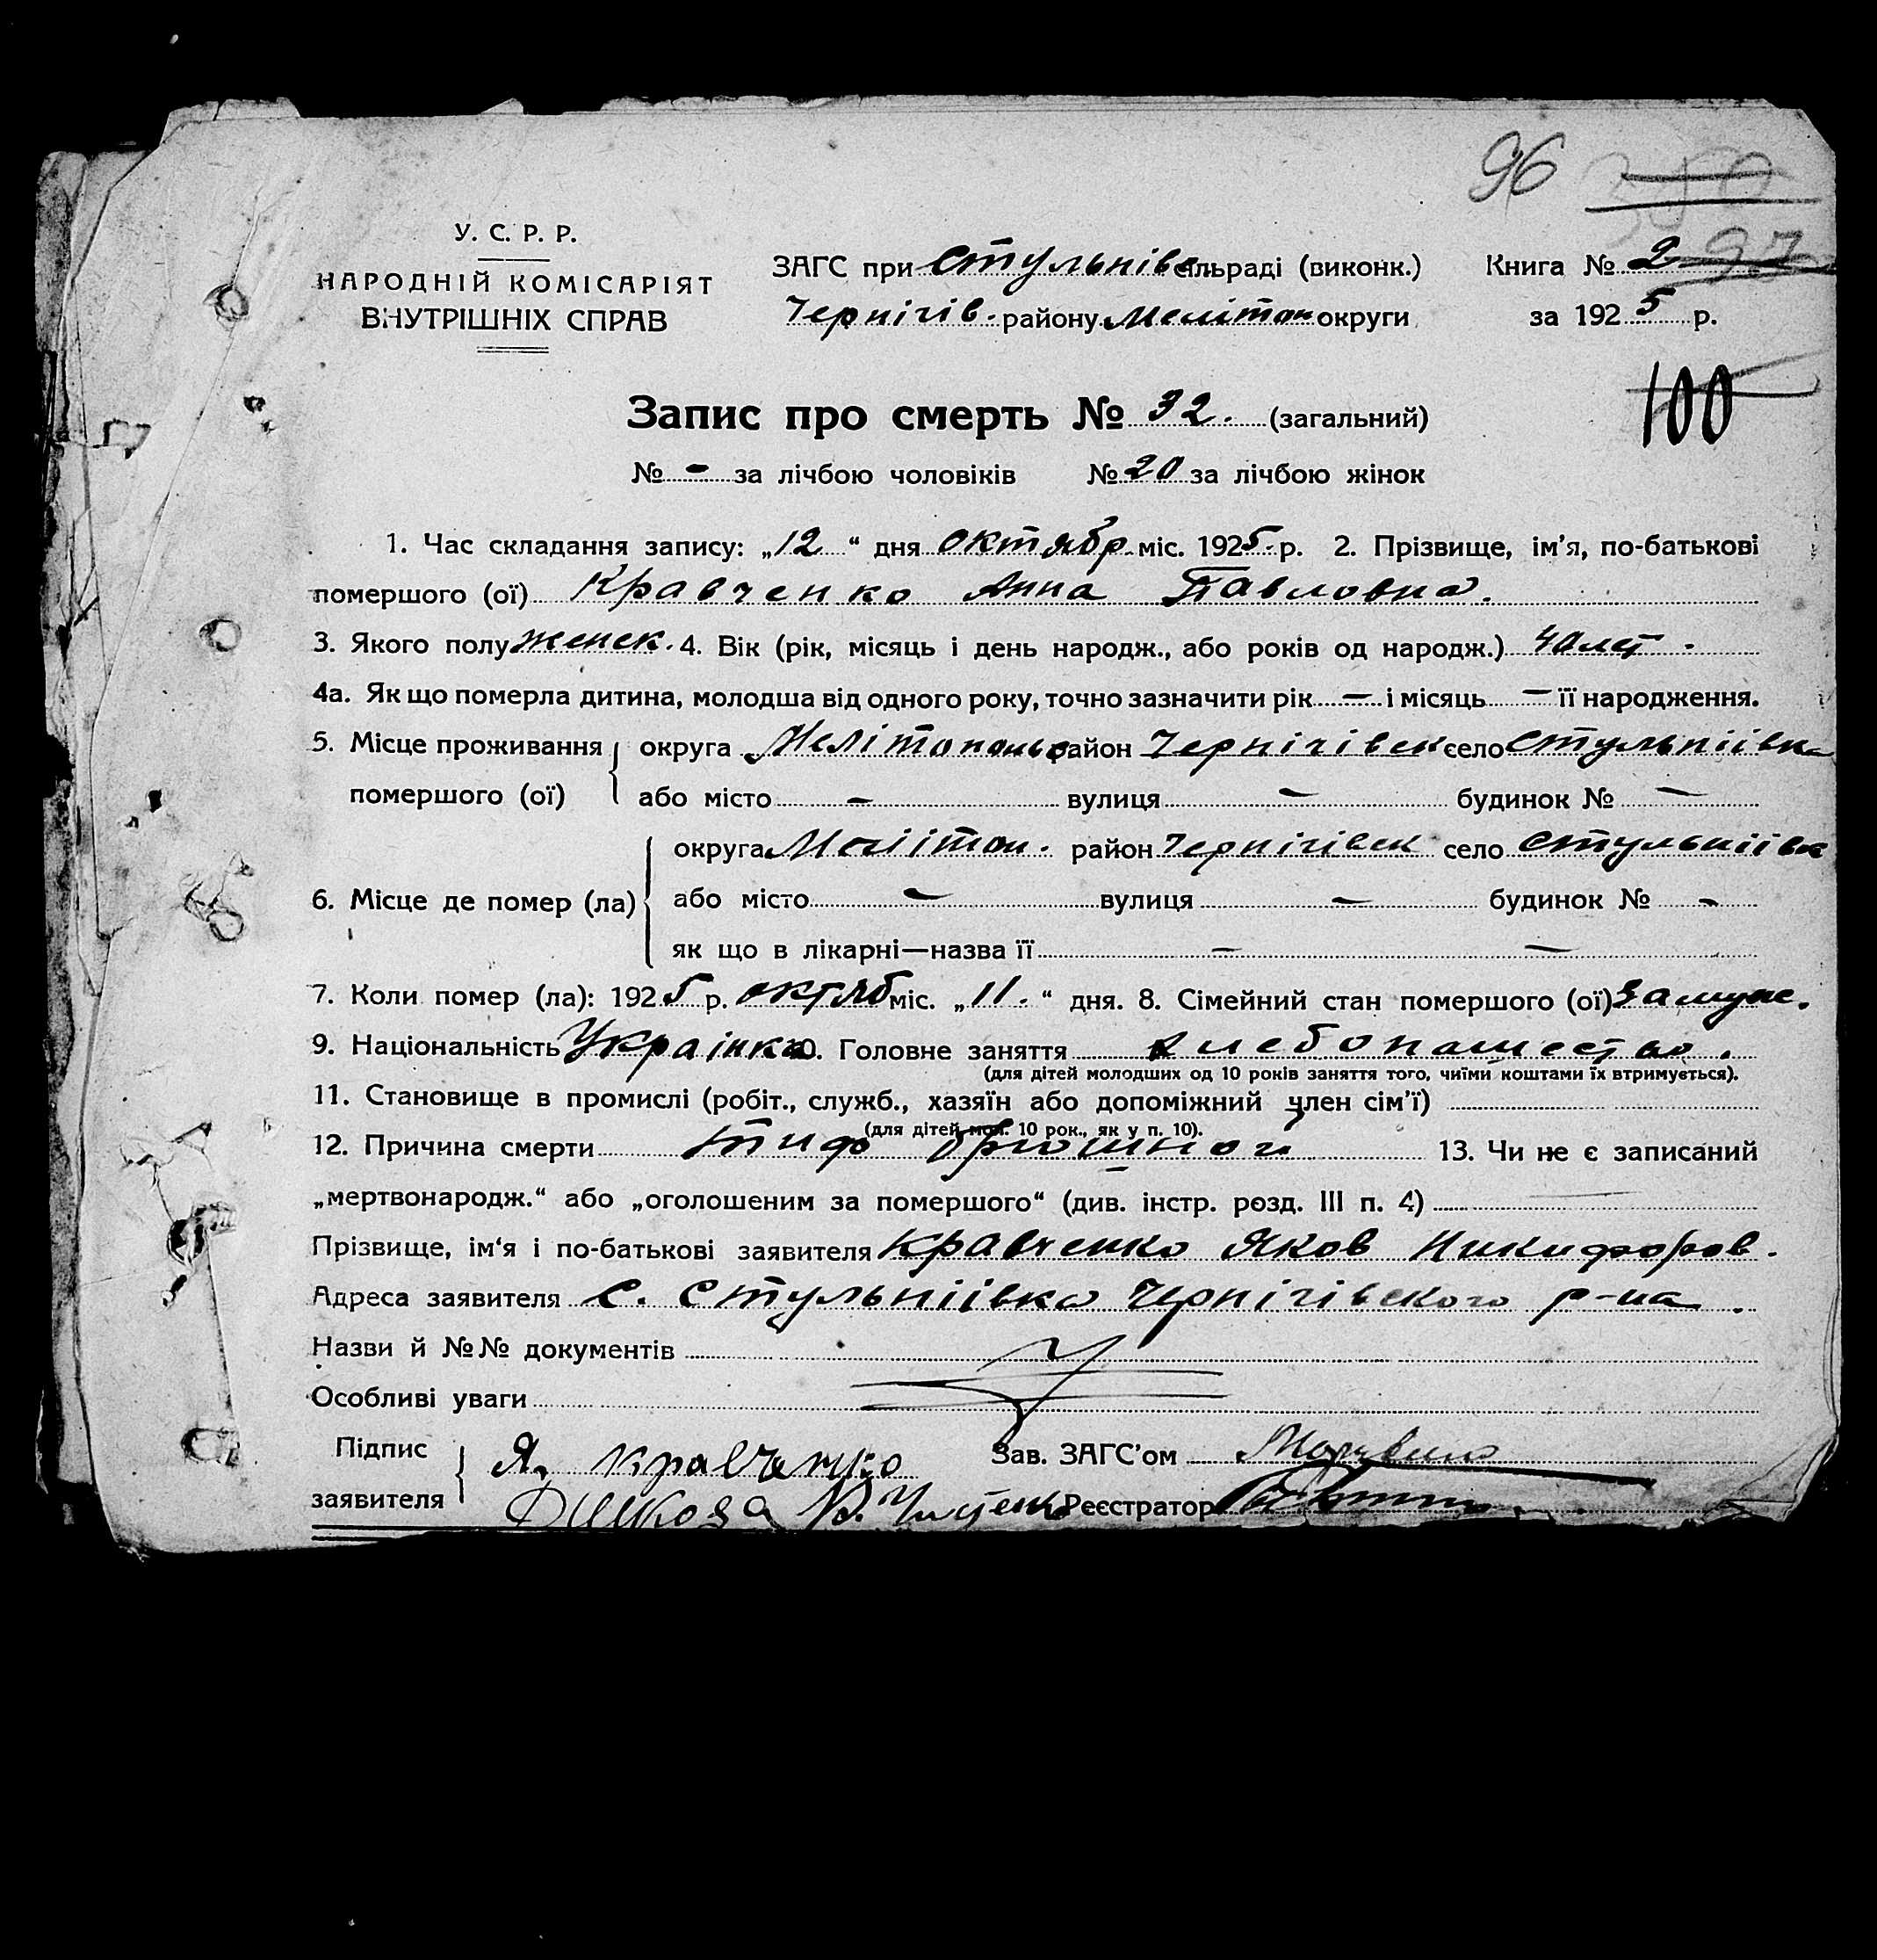 96 350
У. С. Р. Р.
НАРОДНІЙ КОМІСАРІЯТ
ВНУТРІШНІХ СПРАВ
ЗАГС при Стульнівс сільраді (виконк.) Книга № 2 97
Чернігів. району Мелітоп округи за 1925 р.
100
Запис про смерть № 32. (загальний)
№ - за лічбою чоловіків № 20 за лічбою жінок
1. Час складання запису: „12" дня октябр. міс. 1925. р. 2. Прізвище, ім'я, по-батькові
помершого (ої) Кравченко Анна Павловна.
3. Якого полу женск. 4. Вік (рік, місяць і день народж., або років од народж.) 40 лет.
4а. Як що померла дитина, молодша від одного року, точно зазначити рік — і місяць — її народження.
5. Місце проживання округа Мелітопольс район Чернігівск село Стульніївка
помершого (ої) або місто — вулиця — будинок № —
округа Меліітоп. район Чернігівск село Стульніївк
6. Місце де помер (ла) або місто — вулиця — будинок № -
як що в лікарні—назва її — —
7. Коли помер (ла): 1925 р. октяб міс. „11." дня. 8. Сімейний стан помершого (ої) замуж.
9. Національність Украінка 10. Головне заняття хлебопашество.
(для дітей молодших од 10 років заняття того, чиїми коштами їх втримується).
11. Становище в промислі (робіт., служб., хазяїн або допоміжний член сім'ї)
(для дітей мол. 10 рок., як у п. 10).
12. Причина смерти тиф брюшной 13. Чи не є записаний
„мертвонародж." або „оголошеним за помершого" (див. інстр. розд. III п. 4) —
Прізвище, ім'я і по-батькові заявителя Кравченко Яков Никифоров.
Адреса заявителя с. Стульніівка Чернігівского р-на.
Назви й №№ документів
Особливі уваги
Підпис Я. Кравченко Зав. ЗАГС'ом
заявителя Реєстратор